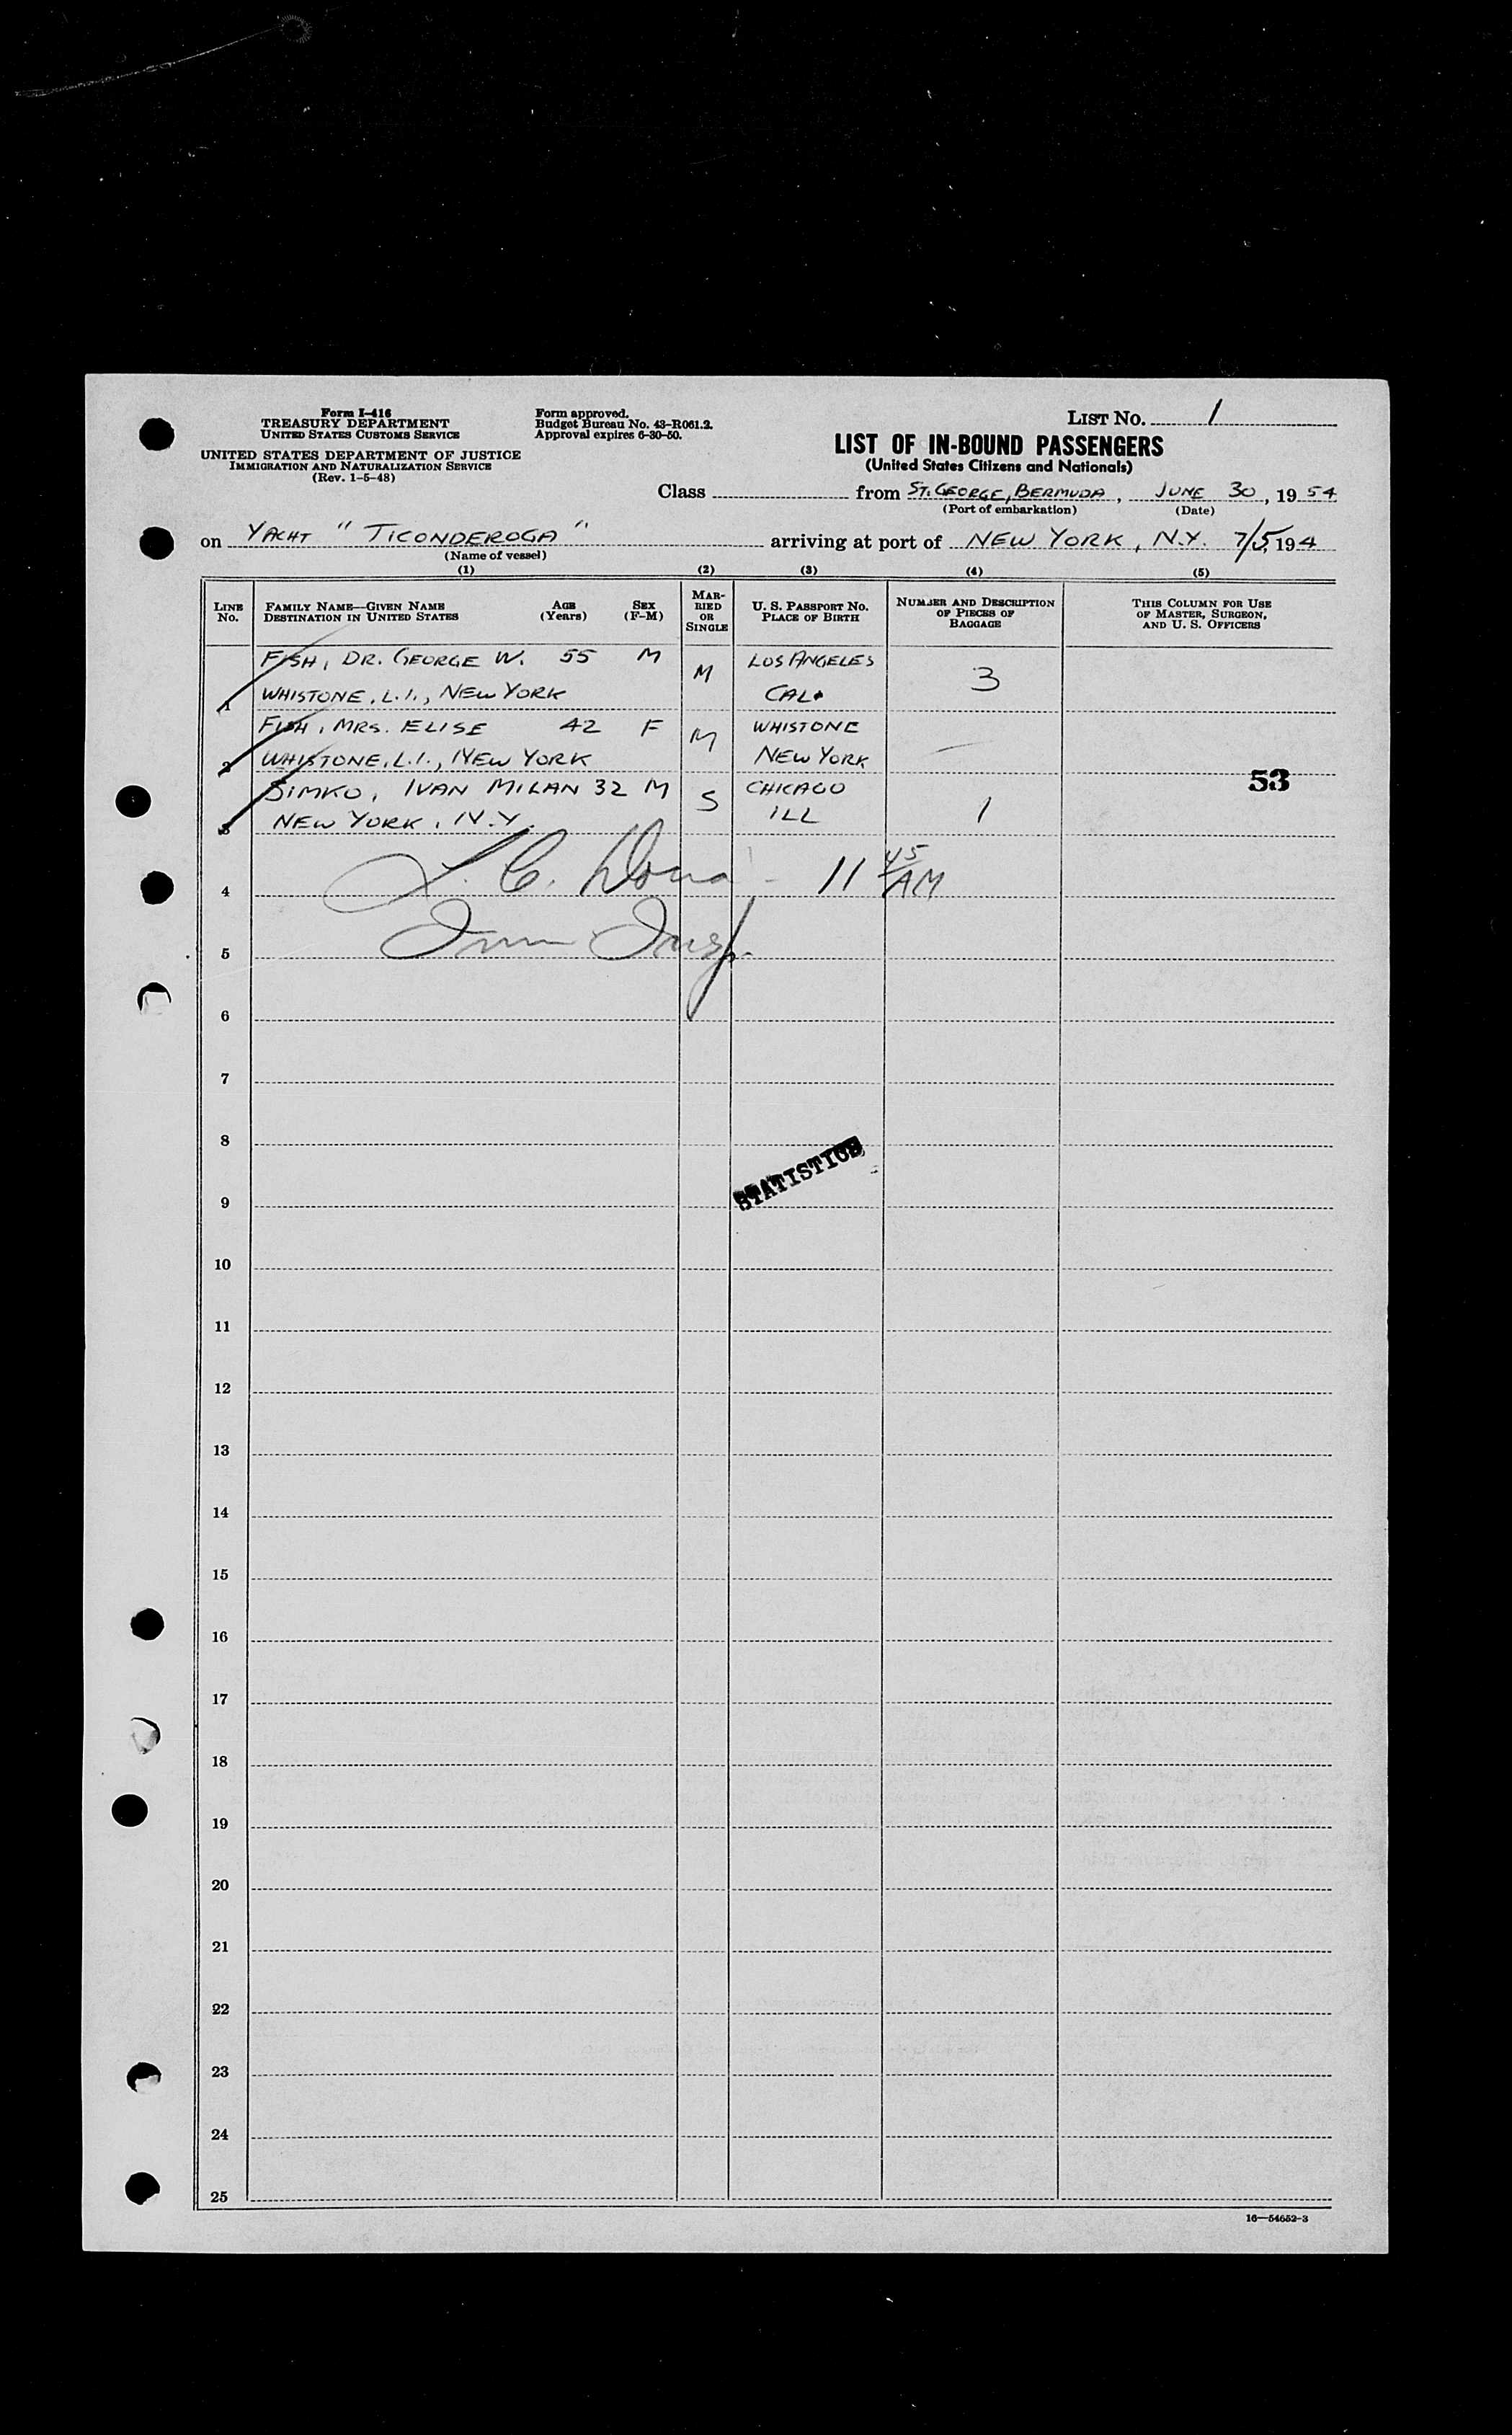 Form I-416
TREASURY DEPARTMENT
UNITED STATES CUSTOMS SERVICE
UNITED STATES DEPARTMENT OF JUSTICE
IMMIGRATION AND NATURALIZATION SERVICE
(Rev. 1-5-48)
Form approved.
Budget Bureau No. 43-R061.2.
Approval expires 6-30-50.
LIST NO. 1
LIST OF IN-BOUND PASSENGERS
(United States Citizens and Nationals)
Class from ST. GEORGE, BERMUDA, JUNE 30, 1954
(Port of embarkation) (Date)
on YACHT "TICONDEROGA" arriving at port of NEW YORK, N.Y. 7/5, 194
(Name of vessel)
(1) (2) (3) (4) (5)
LINE No. FAMILY NAME—GIVEN NAME DESTINATION IN UNITED STATES AGE (Years) SEX (F-M) MARRIED OR SINGLE U. S. PASSPORT NO. PLACE OF BIRTH NUMBER AND DESCRIPTION OF PIECES OF BAGGAGE THIS COLUMN FOR USE OF MASTER, SURGEON, AND U. S. OFFICERS
FISH, DR. GEORGE W. 55 M M LOS ANGELES 3
1 WHISTONE, L.I., NEW YORK CAL.
FISH, MRS. ELISE 42 F M WHISTONE —
2 WHISTONE, L.I., NEW YORK NEW YORK
SIMKO, IVAN MILAN 32 M S CHICAGO 1
3 NEW YORK, N.Y. ILL
53
4 11 45 AM
5 Imm Insp.
6
7
8
STATISTICS
9
10
11
12
13
14
15
16
17
18
19
20
21
22
23
24
25
16—54652-3